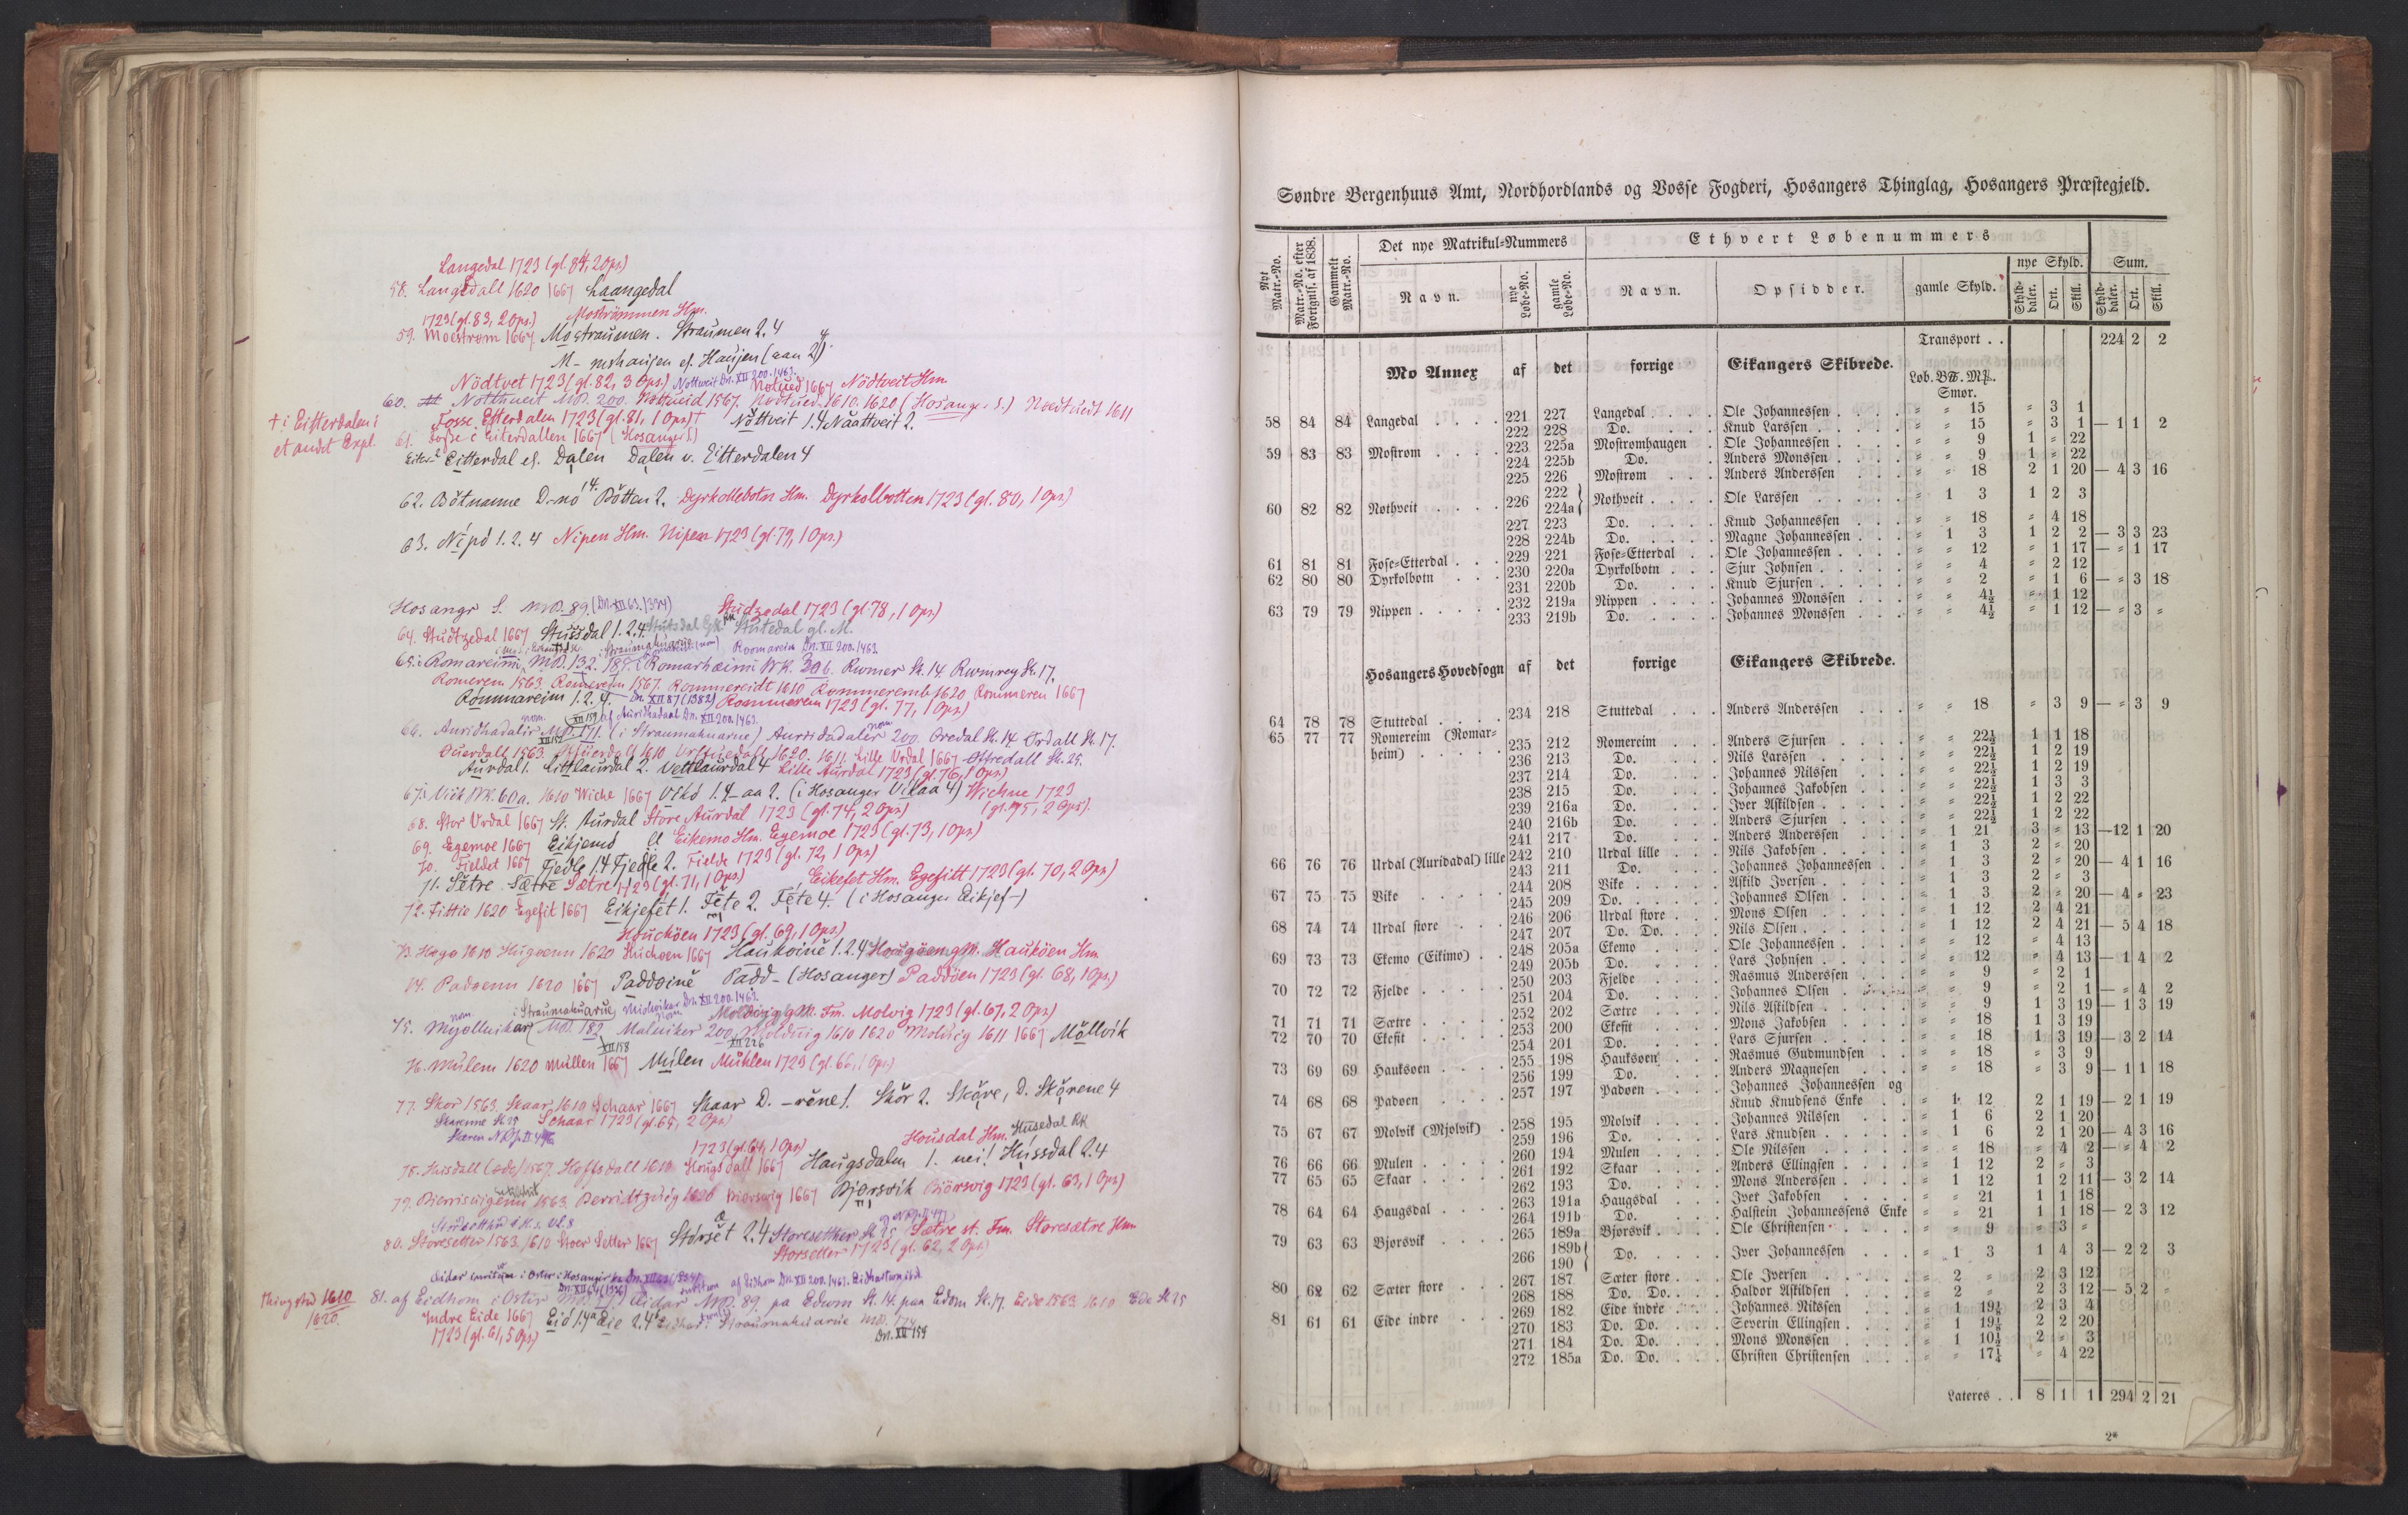 Langedal 1723 (gl. 84, 2 Ops.)
58. Langedall 1620 1667 Laangedal
1723 (gl. 83, 2 Ops.) Moströmmen Hm.
59. Moestrøm 1667. Mostraumen. Straumen 2. 4
Nödtvet 1723 (gl. 82, 3 Ops.) Nottweit Dn. XII 200. 1463.
Nødtued 1610. 1620 (Hosanger S.)
Fosse Etterdalen 1723 (gl. 81, 1 Ops.) † Nöttveit 1.4 Naattveit 2.
† i Eitterdalen i
et andet Expl.
61. Fosse i Eiterdallen 1667 (Hosanger S.)
Eitterdal el. Dalen Dalen v. Eitterdalen 4
62. Bötnanne Bötten 2. Dyrkollebotn Hm. Dyrkolbotten 1723 (gl. 80, 1 Ops.)
63. Nipo 1. 2. 4 Nipen Hm. Nipen 1723 (gl. 79, 1 Ops.)
Hosangr S. MB. 89. Studzedal 1723 (gl. 78, 1 Ops.)
64. Studtzedal 1667 Stussdal 1.2.4. Stutedal gl. M.
65. i Romareimi MB. 132. Romarhæimi BK. Rumer St. 14 Rumrey St. 17.
Romerem 1563. Romereim 1567. Rommereidt 1610 Rommeremb 1620 Rommeren 1667
Rommareim 1. 2. 4. Rommerem 1723 (gl. 77, 1 Ops.)
66. Auridhadalir MB. 171. (i Straumahuarue) Auridadaler 200. Oredal St. 14 Ordall St. 17.
Lille Urdal 1667 Offredall St. 25.
Aurdal 1. Litlaurdal 2. Vetlaurdal 4 Lille Aurdal 1723 (gl. 76, 1 Ops.)
67. i Vich BK. 60a. 1610 Wiche 1667 (i Hosanger Vikaa 4) Wichne 1723
(gl. 75, 2 Ops.)
68. Stor Urdal 1667 St. Aurdal Store Aurdal 1723 (gl. 74, 2 Ops.)
69. Egemoe 1667 Eikjemo Eikemo Hm. Egemoe 1723 (gl. 73, 1 Ops.)
70. Fieldet 1667 Fjedle 1.4 Fjedle 2. Fielde 1723 (gl. 72, 1 Ops.)
71. Setre Sætre Sætre 1723 (gl. 71, 1 Ops.) Eikefet Hm. Egefitt 1723 (gl. 70, 2 Ops.)
72. Fittie 1620 Egefit 1667 Eikjefet 1. Fete 2. Fete 4. (i Hosanger Eikjef-)
Houchöen 1723 (gl. 69, 1 Ops.)
73. Høgø 1610 Hugøenn 1620 Huchøen 1667 Haukoine 1. 2. 4 Haukøen Hm.
74. Padøenn 1620 1667 Paddoine Padd- (Hosanger) Paddöen 1723 (gl. 68, 1 Ops.)
Fm. Molvig 1723 (gl. 67, 2 Ops.)
75. Myollnikar MB. 182 Malniker 200. Moldvig 1610 1620 Molvig 1611 1667 Möllvik
76. Mulem 1620 Mullen 1667 Milen Mühlen 1723 (gl. 66, 1 Ops.)
77. Skor 1563. Skaar 1610 Schaar 1667 Skaar D. -rene 1. Skör 2. Sköre, D. Skörene 4
Skarenne St. 25 Schaar 1723 (gl. 65, 2 Ops.)
1723 (gl. 64, 1 Ops.) Housdal Hm. Husedal RK
78. Huisdall (øde) 1567. Hoffsdall 1610 Hougsdall 1667 Haugsdalen 1. nei! Hussdal 2.4
79. Bierrisuigenn 1563. Berridtzuig 1620 Biørswig 1667 Bjorsvik Biörsvig 1723 (gl. 63, 1 Ops.)
80. Storesetter 1563. 1610 Stoer Setter 1667 Storset 2.4 Storesetther St. 25 Sætre st. Fm. Storesætre Hm
Storsetter 1723 (gl. 62, 2 Ops.)
Thingsted 1610
1620.
81. af Eidhom i Ostir Eidar MB. 89. pa Edom St. 14. paa Edom St. 17. Eide 1563. 1610 Ede St. 25
Indre Eide 1667 i Straumahuarue MB.
1723 (gl. 61, 5 Ops.)
Dn. XII 159
Søndre Bergenhuus Amt, Nordhordlands og Vosse Fogderi, Hosangers Thinglag, Hosangers Præstegjeld.
Nyt Matr.-No. | Matr.-No. efter Fortegnis. af 1838. | Gammelt Matr.-No. | Det nye Matrikul-Nummers | Ethvert Løbenummers
Navn. | nye Løbe-No. | gamle Løbe-No. | Navn. | Opsidder. | gamle Skyld. | nye Skyld. | Sum.
Skyld-daler. | Ort. | Skill. | Skyld-daler. | Ort. | Skill.
Transport . . 224 2 2
Mo Annex af det forrige Eikangers Skibrede. Løb. B℔. M℔.
Smør.
58 84 84 Langedal 221 227 Langedal Ole Johannessen " " 15 " 3 1
222 228 Do. Knud Larssen " " 15 " 3 1 — 1 1 2
59 83 83 Mostrøm 223 225a Mostrømhaugen Ole Johannessen " " 9 1 " 22
224 225b Do. Anders Monssen " " 9 1 " 22
225 226 Mostrøm Anders Anderssen " " 18 2 1 20 — 4 3 16
60 82 82 Nøthveit 226 222 224a } Nøthveit Ole Larssen " 1 3 1 2 3
227 223 Do. Knud Johannessen " " 18 " 4 18
228 224b Do. Magne Johannessen " 1 3 1 2 2 — 3 3 23
61 81 81 Fose-Etterdal 229 221 Fose-Etterdal Ole Johannessen " " 12 " 1 17 — " 1 17
62 80 80 Dyrkolbotn 230 220a Dyrkolbotn Sjur Johnsen " " 4 " 2 12
231 220b Do. Knud Sjursen " " 2 " 1 6 — " 3 18
63 79 79 Nippen 232 219a Nippen Johannes Monssen " " 4½ " 1 12
233 219b Do. Johannes Monssen " " 4½ " 1 12 — " 3 "
Hosangers Hovedsogn af det forrige Eikangers Skibrede.
64 78 78 Stuttedal 234 218 Stuttedal Anders Anderssen " " 18 " 3 9 — " 3 9
65 77 77 Romereim (Romar-
heim) 235 212 Romereim Anders Sjursen " " 22½ 1 1 18
236 213 Do. Nils Larssen " " 22½ 1 2 19
237 214 Do. Johannes Nilssen " " 22½ 1 2 19
238 215 Do. Johannes Jakobsen " " 22½ 1 3 3
239 216a Do. Iver Askildsen " " 22½ 1 2 22
240 216b Do. Anders Sjursen " " 22½ 1 2 22
241 217 Do. Anders Anderssen " 1 21 3 " 13 —12 1 20
66 76 76 Urdal (Auridadal) lille 242 210 Urdal lille Nils Jakobsen " 1 3 2 " 20
243 211 Do. Johannes Johannessen " 1 3 2 " 20 — 4 1 16
67 75 75 Vike 244 208 Vike Askild Iversen " 1 3 2 " 3
245 209 Do. Johannes Olsen " 1 3 2 " 20 — 4 " 23
68 74 74 Urdal store 246 206 Urdal store Mons Olsen " 1 12 2 4 21
247 207 Do. Do. Nils Olsen " 1 12 2 4 21 — 5 4 18
69 73 73 Ekemo (Eikimo) 248 205a Ekemo Ole Johannessen " " 12 " 4 13
249 205b Do. Lars Johnsen " " 12 " 4 13 — 1 4 2
70 72 72 Fjelde 250 203 Fjelde Rasmus Anderssen " " 9 " 2 1
251 204 Do. Johannes Olsen " " 9 " 2 1 — " 4 2
71 71 71 Sætre 252 202 Sætre Nils Askildsen " " 9 1 3 19 — 1 3 19
72 70 70 Ekefit 253 200 Ekefit Mons Jakobsen " " 18 1 3 19
254 201 Do. Lars Sjursen " " 18 1 3 19 — 3 2 14
73 69 69 Hauksøen 255 198 Hauksøen Rasmus Gudmundsen " " 18 " 3 9
256 199 Do. Anders Magnesen " " 18 " 3 9 — 1 1 18
74 68 68 Padøen 257 197 Padøen Johannes Johannessen og
Knud Knudsens Enke " 1 12 2 1 19 — 2 1 19
75 67 67 Molvik (Mjolvik) 258 195 Molvik Johannes Nilssen " 1 6 2 1 20
259 196 Do. Lars Knudsen " 1 6 2 1 20 — 4 3 16
76 66 66 Mulen 260 194 Mulen Ole Nilssen " " 18 " 4 2 — " 4 2
77 65 65 Skaar 261 192 Skaar Anders Ellingsen " 1 12 2 " 3
262 193 Do. Mons Anderssen " 1 12 1 2 11 — 3 2 14
78 64 64 Haugsdal 263 191a Haugsdal Iver Jakobsen " " 21 1 1 18
264 191b Do. Halstein Johannessens Enke " " 21 1 1 18 — 2 3 12
79 63 63 Bjørsvik 265 189a Bjørsvik Ole Christensen " " 9 " 3 "
266 189b 190 } Do. Iver Johannessen " 1 3 1 4 3 — 2 2 3
80 62 62 Sæter store 267 187 Sæter store Ole Iversen " 2 " 2 3 12
268 188 Do. Do. Haldor Askildsen " 2 " 2 3 12 — 5 2 "
81 61 61 Eide indre 269 182 Eide indre Johannes Nilssen " 1 19½ 2 3 4
270 183 Do. Do. Severin Ellingsen " 1 19½ 2 2 20
271 184 Do. Do. Mons Monssen " 1 10½ 2 " 3
272 185a Do. Do. Christen Christensen " " 17¼ " 4 22
Lateres . . 8 1 1 294 2 21
2*